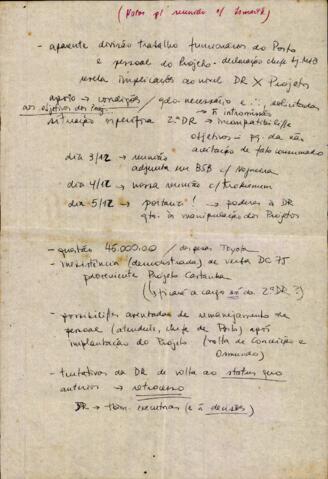 (Notas p/ reunião c/ Ismarth)
- aparente divisão trabalho funcionários do Posto
e pessoal do Projeto - declaração chefe
revela implicações ao nível DR X Projetos
apoio → condições / qdo necessário e ∴ solicitadas
aos objetivos dos
→ ñ intromissões
situação específica 2ª DR → incompatibilid/e
objetivos - pq. da não
aceitação de fato consumado
dia 3/12 → reunião
adjunta em BSB c/ Nogueira
dia 4/12 → nossa reunião c/
dia 5/12 → portaria! → poderes à DR
qto. à manipulação dos Projetos
- questão 45.000.00 / despesa Toyota
- inexistência (demonstrada) de verba DC 75
proveniente Projeto Castanha
(s/ficará a cargo só da 2ª DR?)
- possibilid/es aventadas de remanejamento de
pessoal (atendente, chefe de Posto) após
implantação do Projeto (volta de Conceição e
Osmundo)
- tentativas da DR de volta ao status quo
anterior → retrocesso
DR → tbm. executivas (e ñ decisões)